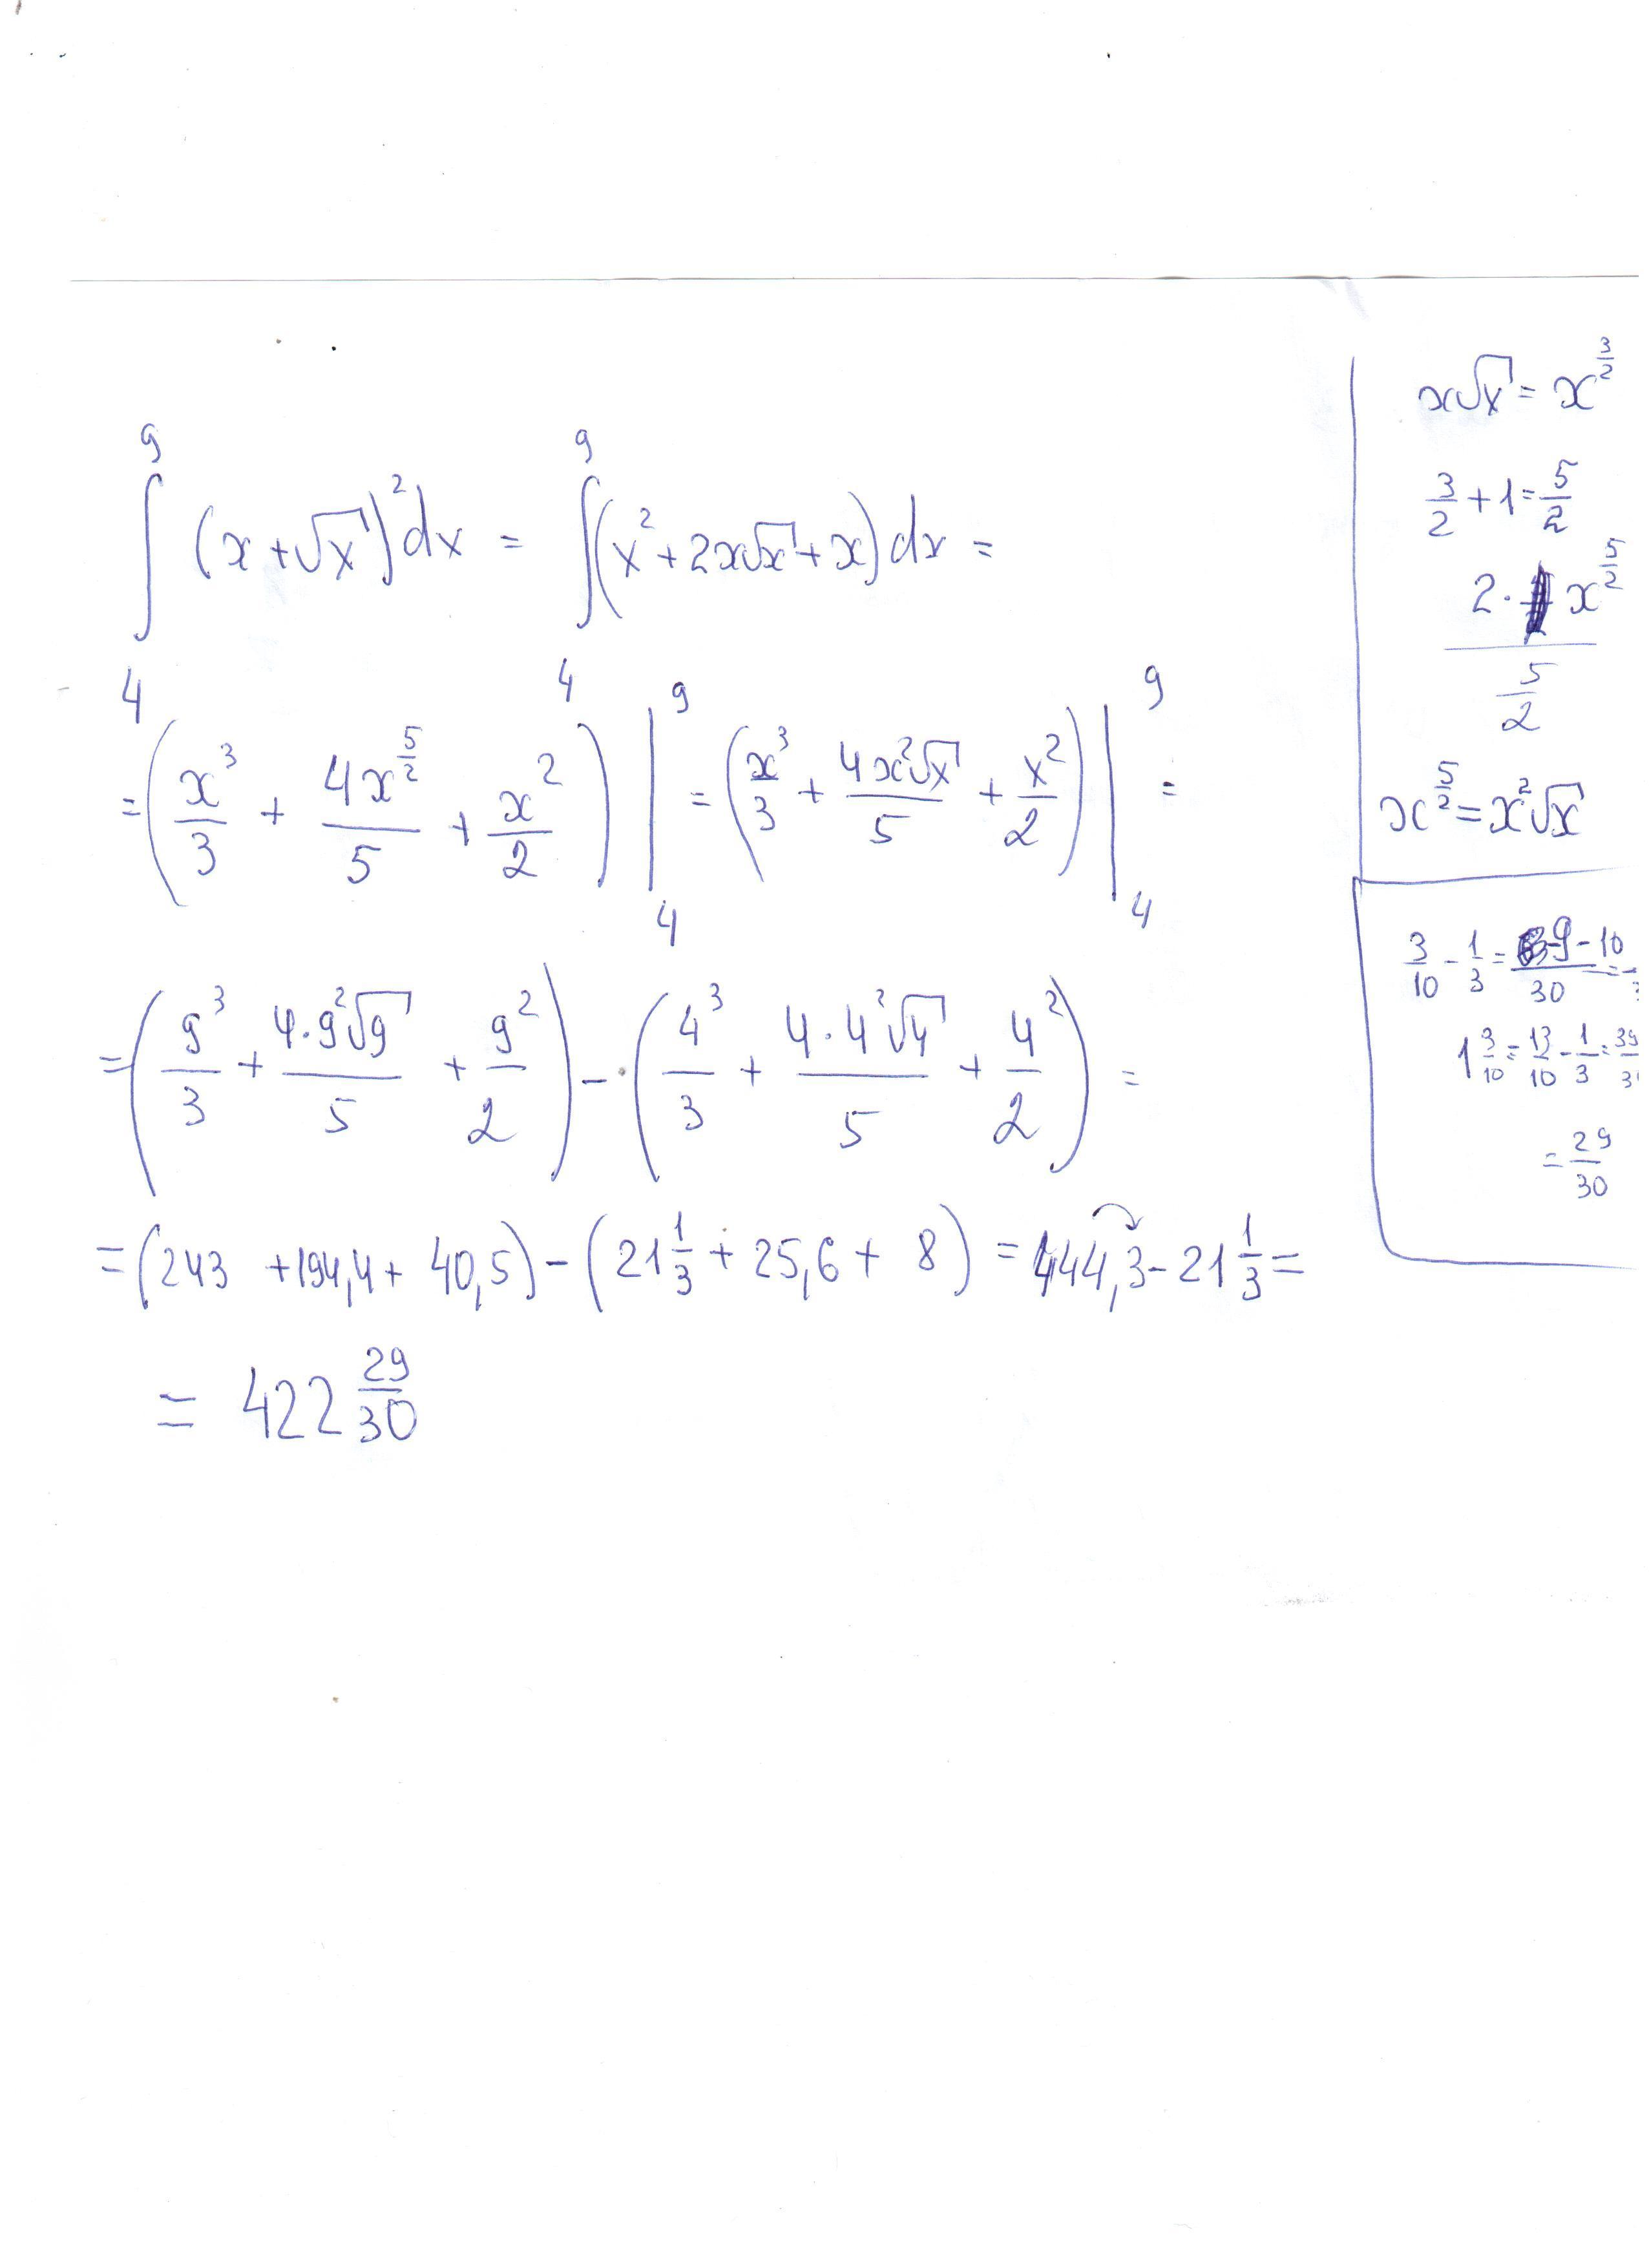 ∫₄⁹ (x+√x)² dx = ∫₄⁹ (x²+2x√x+x) dx =
= (x³/3 + 4x^(5/2)/5 + x²/2) |₄⁹ = (x³/3 + 4x²√x/5 + x²/2) |₄⁹ =
= (9³/3 + 4·9²√9/5 + 9²/2) - (4³/3 + 4·4²√4/5 + 4²/2) =
= (243 + 194,4 + 40,5) - (21 1/3 + 25,6 + 8) = 444,3 - 21 1/3 =
= 422 29/30
x√x = x^(3/2)
3/2 + 1 = 5/2
2· x^(5/2)
5/2
x^(5/2) = x²√x
3/10 - 1/3 = 9-10/30 = -
1 3/10 = 13/10 - 1/3 = 39
= 29/30